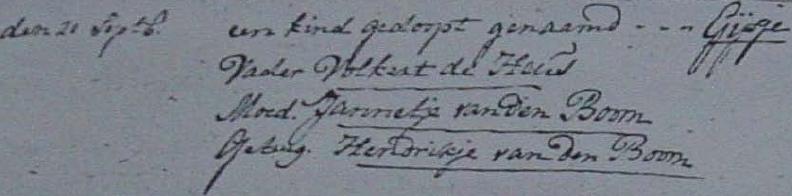 den 21 Septb. een kind gedoopt genaamd - - - Gijsje
Vader Volkert de Heus
Moed. Jannetje van den Boom
Getuig. Hendrikje van den Boom